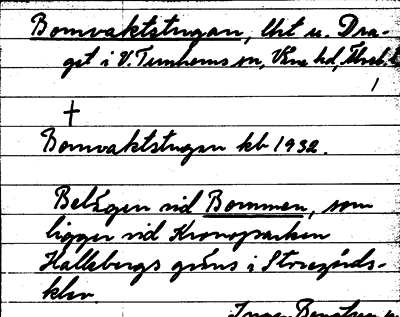 Bomvaktstugan, lht u. Dra-
get i V. Tunhems sn, Väne hd, Älvsb. l.
1
†
Bomvaktstugan kb 1932.
Belägen vid Bommen, som
ligger vid Kronoparken
Hallebergs gräns i Storegårds-
klev.